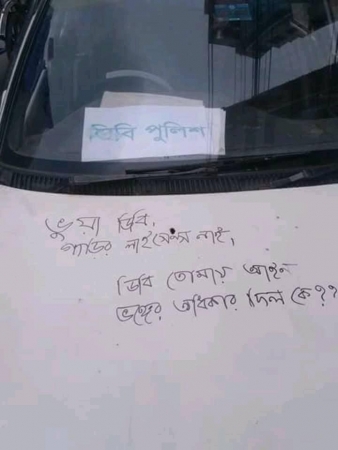 ডিবি পুলিশ
ভুয়া ডিবি,
গাড়ির লাইসেন্স নাই,
ডিবি তোমায় আইন
ভঙ্গের অধিকার দিল কে??